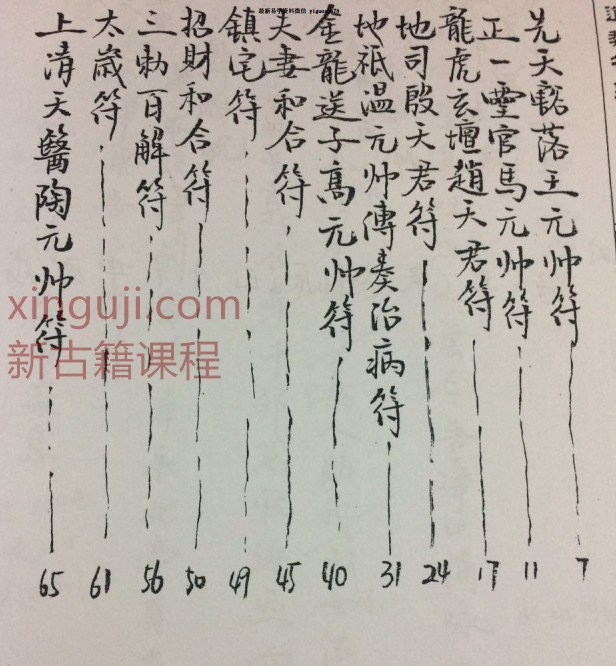 先天豁落王元帅符 7
正一靈官馬元帅符 11
龍虎玄壇趙天君符 17
地司殷天君符 24
地祇温元帅傳奏治病符 31
金龍送子髙元帅符 40
夫妻和合符 45
鎮宅符 49
招財和合符 50
三勅百解符 56
太歲符 61
上清天醫陶元帅符 65
xinguji.com
新古籍课程